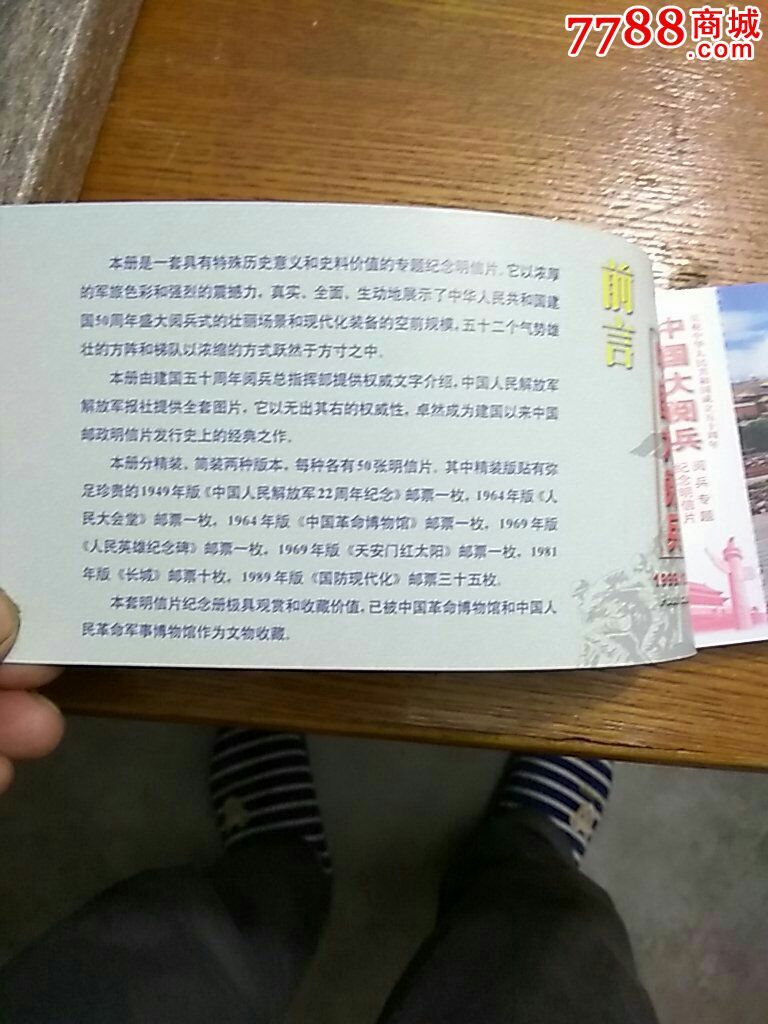 7788商城
.com
前言
本册是一套具有特殊历史意义和史料价值的专题纪念明信片。它以浓厚
的军旅色彩和强烈的震撼力，真实、全面、生动地展示了中华人民共和国建
国50周年盛大阅兵式的壮丽场景和现代化装备的空前规模，五十二个气势雄
壮的方阵和梯队以浓缩的方式跃然于方寸之中。
本册由建国五十周年阅兵总指挥部提供权威文字介绍，中国人民解放军
解放军报社提供全套图片，它以无出其右的权威性，卓然成为建国以来中国
邮政明信片发行史上的经典之作。
本册分精装、简装两种版本，每种各有50张明信片。其中精装版贴有弥
足珍贵的1949年版《中国人民解放军22周年纪念》邮票一枚，1964年版《人
民大会堂》邮票一枚，1964年版《中国革命博物馆》邮票一枚，1969年版
《人民英雄纪念碑》邮票一枚，1969年版《天安门红太阳》邮票一枚，1981
年版《长城》邮票十枚，1989年版《国防现代化》邮票三十五枚。
本套明信片纪念册极具观赏和收藏价值，已被中国革命博物馆和中国人
民革命军事博物馆作为文物收藏。
庆祝中华人民共和国成立五十周年
中国大阅兵
阅兵专题
纪念明信片
1999.